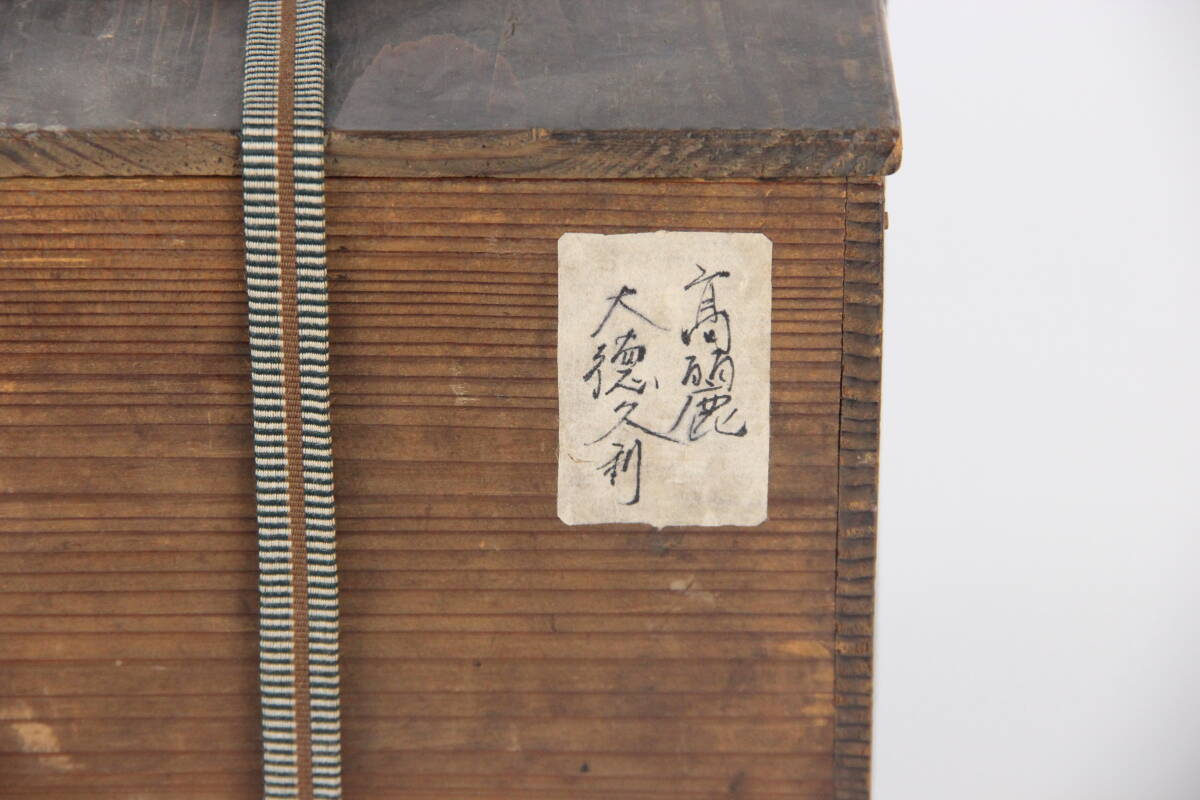 高麗
大徳久利